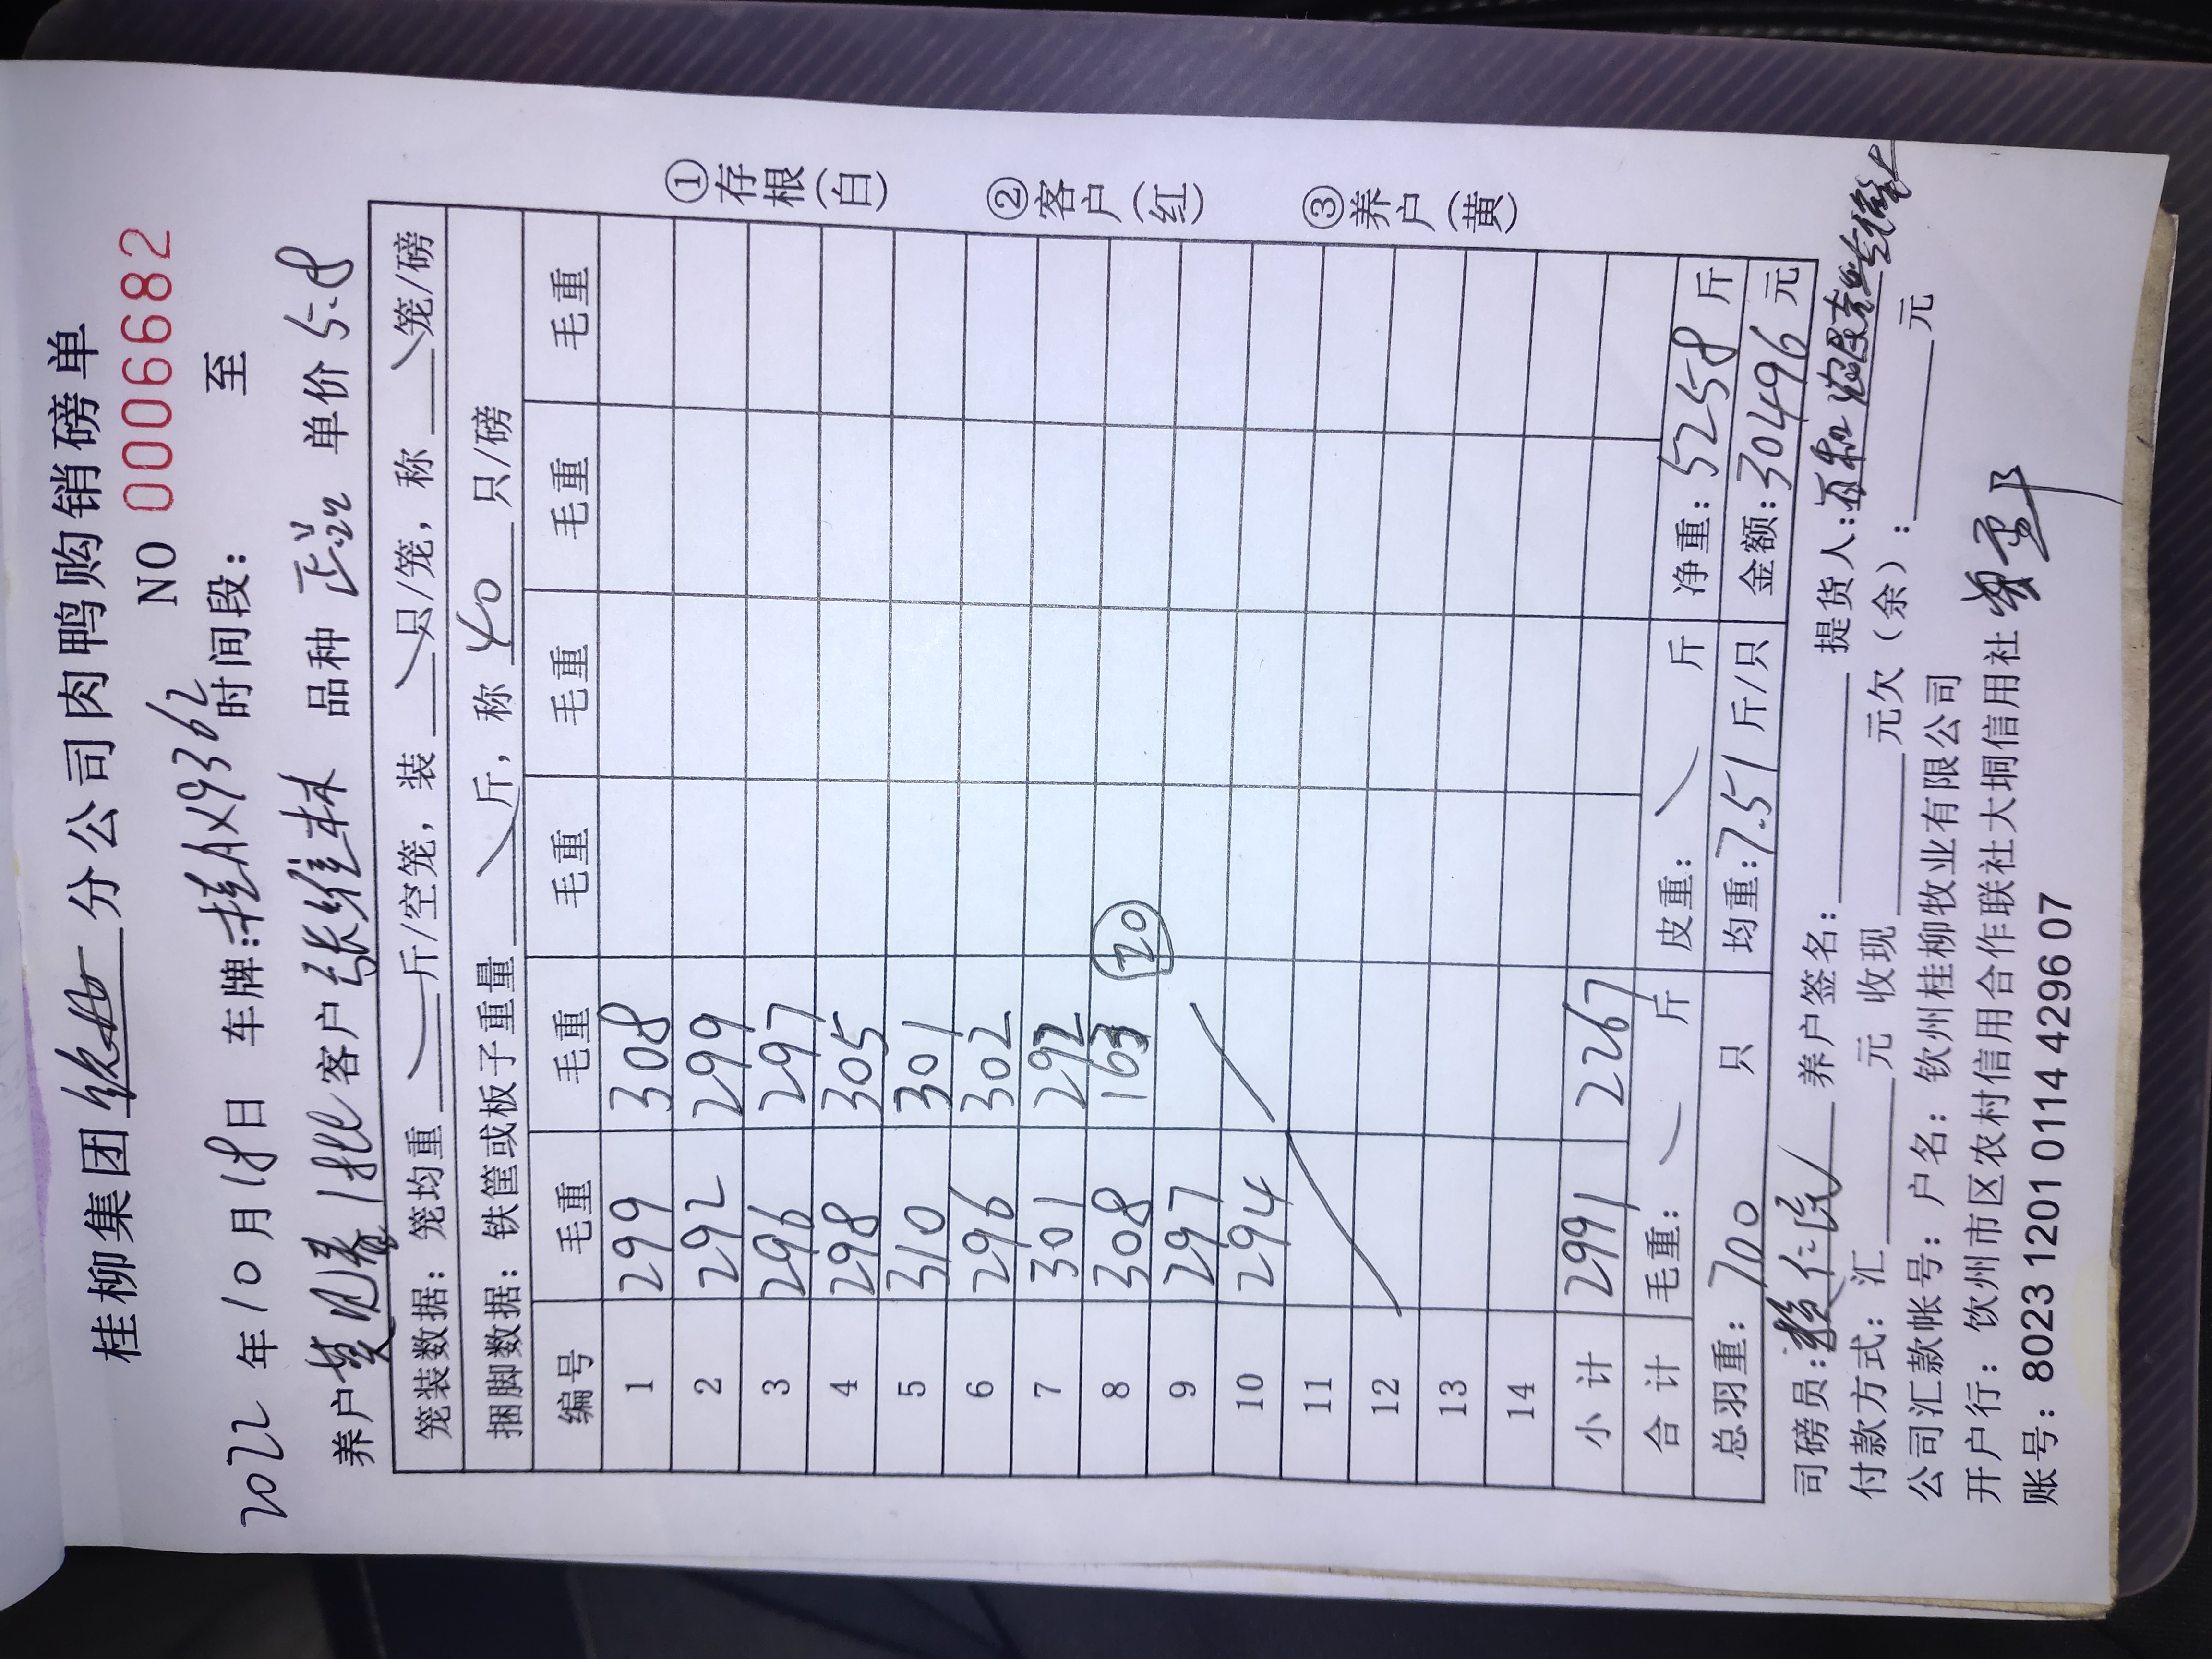 桂柳集团 分公司肉鸭购销磅单
NO 0006682
2022 年 10 月 18 日 车牌:桂AX9362 时间段: 至
养户 客户 张维林 品种 单价 5.8
笼装数据: 笼均重 斤/空笼, 装 只/笼, 称 笼/磅
捆脚数据: 铁筐或板子重量 斤, 称 40 只/磅
编号 毛重 毛重 毛重 毛重 毛重 毛重
1 299 308
2 292 299
3 296 297
4 298 305
5 310 301
6 296 302
7 301 292
8 308 163 20
9 297
10 294
11
12
13
14
小计 2991 2267
合计 毛重: 斤 皮重: 斤 净重: 5258 斤
总羽重: 700 只 均重: 7.51 斤/只 金额: 30496 元
①存根(白)
②客户(红)
③养户(黄)
司磅员: 养户签名: 提货人:
付款方式: 汇 元 收现 元欠(余): 元
公司汇款帐号: 户名: 钦州桂柳牧业有限公司
开户行: 饮州市区农村信用合作联社大垌信用社
账号: 8023 1201 0114 4296 07